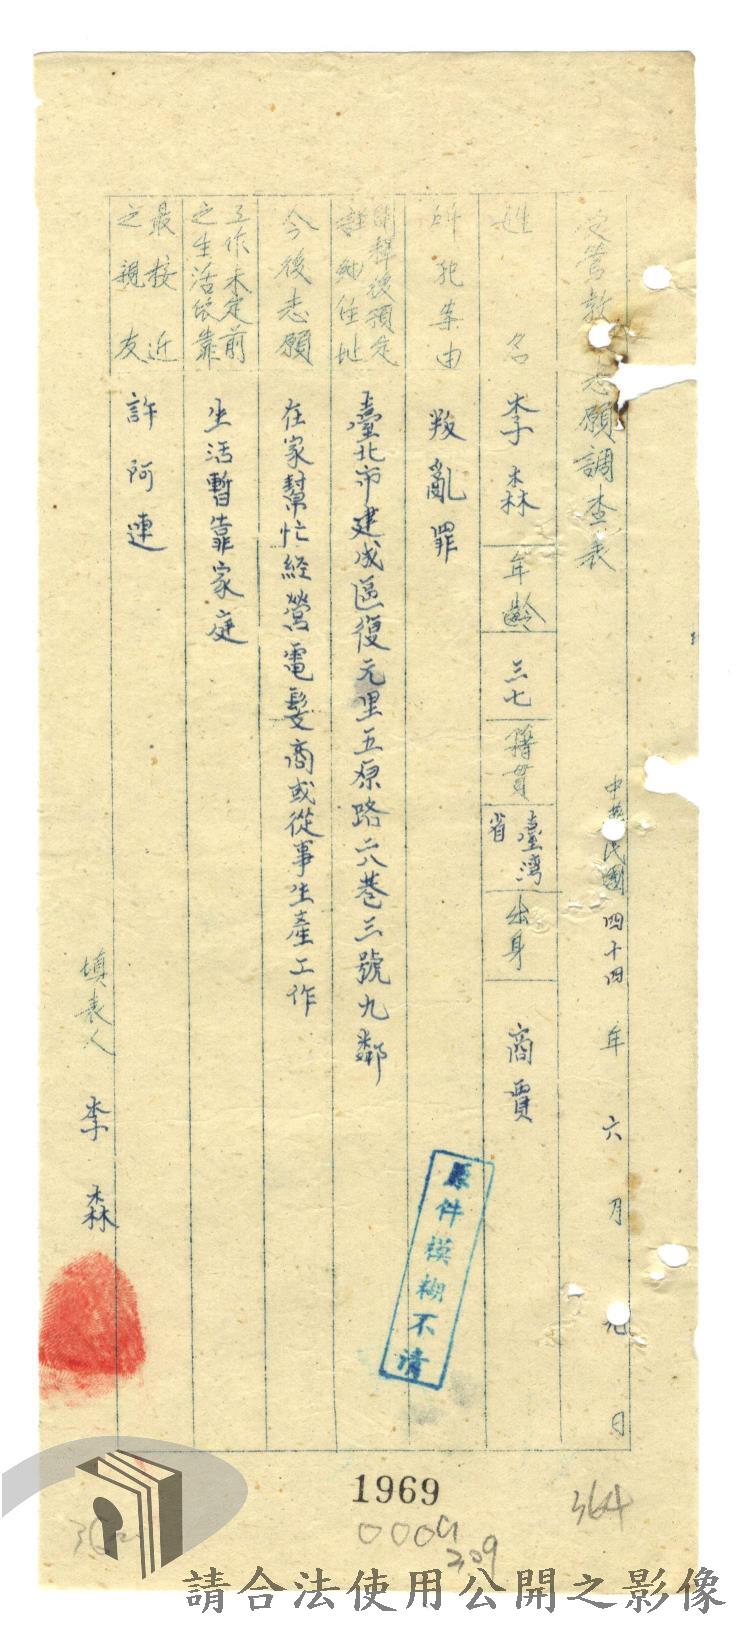 受管教　志願調查表
中華民國四十四年六月九日
姓名　李森　年齡　三七　籍貫　臺灣省　出身　商賈
所犯案由　叛亂罪
開釋後預定詳細住址　臺北市建成區復元里五原路六八巷三號九鄰
今後志願　在家幫忙経營電髮商或從事生產工作
工作未定前之生活依靠　生活暫靠家庭
最接近之親友　許阿連
填表人　李森
原件模糊不清
1969
364
0009
209
請合法使用公開之影像